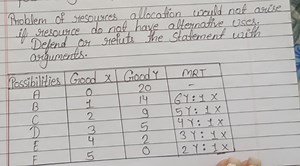 Problem of resources allocation would not arise
if resource do not have alternative uses.
Defend or refute the statement with
arguments.
Possibilities Good X Good Y MRT
A 0 20 -
B 1 14 6Y:1X
C 2 9 5Y:1X
D 3 5 4Y:1X
E 4 2 3Y:1X
F 5 0 2Y:1X